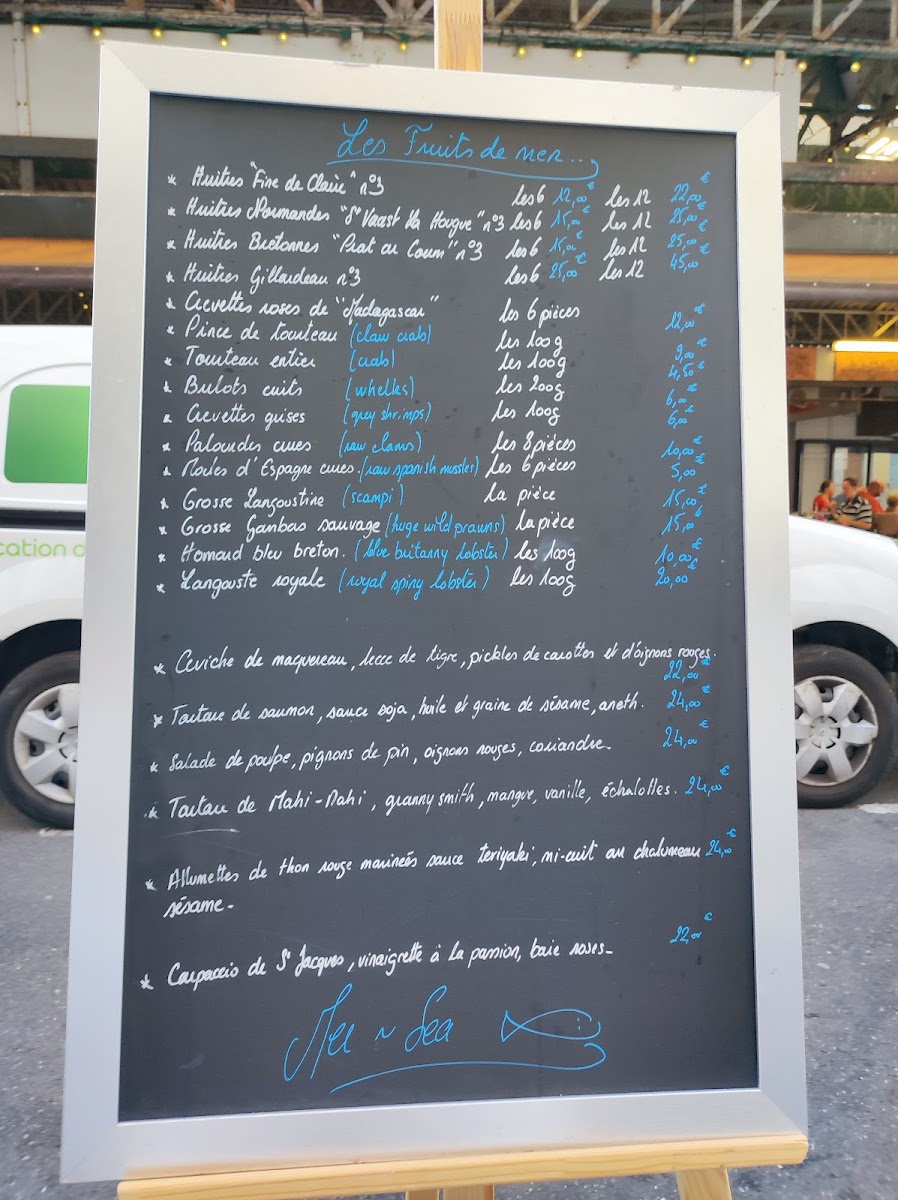 Les Fruits de mer...
* Huîtres "Fine de Claire" n°3 les 6 12,00€ les 12 22,00€
* Huîtres Normandes "St Vaast la Hougue" n°3 les 6 15,00€ les 12 25,00€
* Huîtres Bretonnes "Prat ar Coum" n°3 les 6 15,00€ les 12 25,00€
* Huîtres Gillardeau n°3 les 6 25,00€ les 12 45,00€
* Crevettes roses de "Madagascar" les 6 pièces 12,00€
* Pince de tourteau (claw crabs) les 100g 9,00€
* Tourteau entier (crabs) les 100g 4,50€
* Bulots cuits (whelks) les 200g 6,00€
* Crevettes grises (grey shrimps) les 100g 6,00€
* Palourdes crues (raw clams) les 8 pièces 10,00€
* Moules d'Espagne crues. (raw spanish mussles) les 6 pièces 5,00€
* Grosse Langoustine (scampi) la pièce 15,00€
* Grosse Gambas sauvage (huge wild prawns) la pièce 15,00€
* Homard bleu breton. (blue brittany lobster) les 100g 10,00€
* Langouste royale (royal spiny lobster) les 100g 20,00€
* Ceviche de maquereau, lecce de tigre, pickles de carottes et d'oignons rouges.
22,00€
* Tartare de saumon, sauce soja, huile et graine de sésame, aneth. 24,00€
* Salade de poulpe, pignons de pin, oignons rouges, coriandre. 24,00€
* Tartare de Mahi-Mahi, granny smith, mangue, vanille, échalottes. 24,00€
* Allumettes de thon rouge marinées sauce teriyaki, mi-cuit au chalumeau 24,00€
sésame-
* Carpaccio de St Jacques, vinaigrette à la passion, baie roses- 22,00€
Mer ~ Sea
cation d